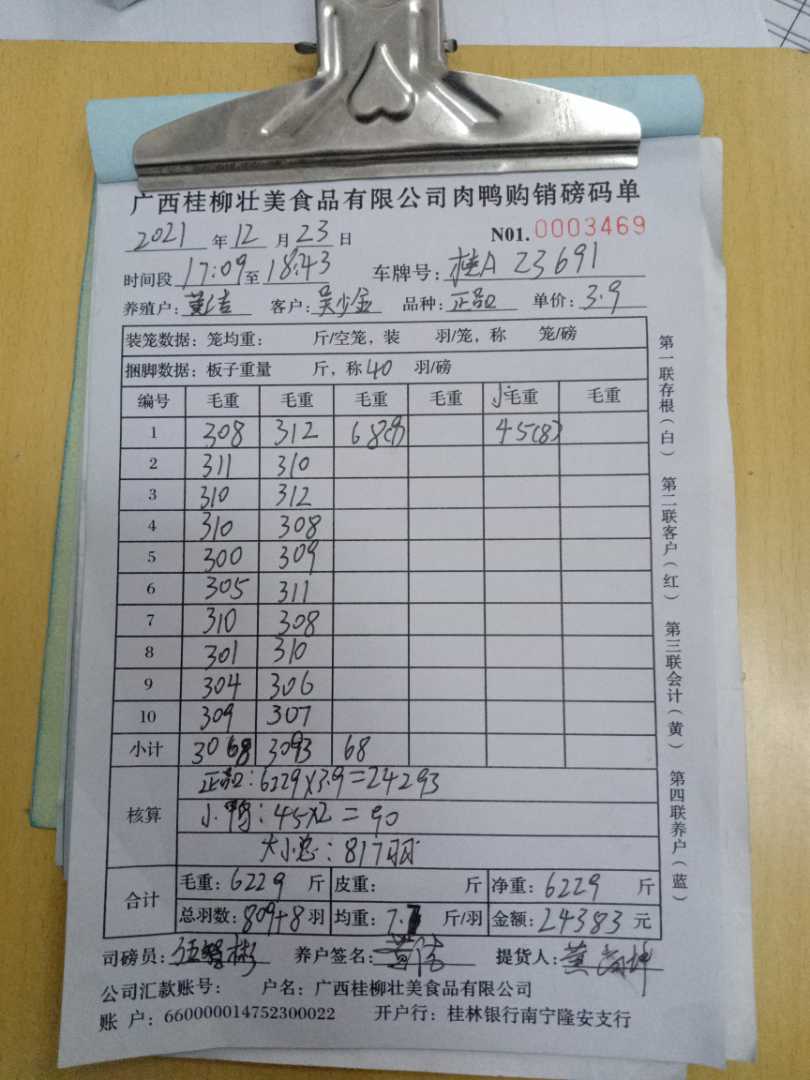 广西桂柳壮美食品有限公司肉鸭购销磅码单
2021 年 12 月 23 日 N01. 0003469
时间段 17:09 至 18:43 车牌号: 桂A Z3691
养殖户: 黄洁 客户: 吴少金 品种: 正品 单价: 3.9
装笼数据: 笼均重: 斤/空笼, 装 羽/笼, 称 笼/磅
捆脚数据: 板子重量 斤, 称 40 羽/磅
编号 毛重 毛重 毛重 毛重 小毛重 毛重
1 308 312 68(9) 45(8)
2 311 310
3 310 312
4 310 308
5 300 309
6 305 311
7 310 308
8 301 310
9 304 306
10 309 307
小计 3068 3093 68
核算
正品: 6229×3.9=24293
小鸭: 45×2=90
大小总: 817羽
合计
毛重: 6229 斤 皮重: 斤 净重: 6229 斤
总羽数: 809+8 羽 均重: 7.7 斤/羽 金额: 24383 元
司磅员: 养户签名: 黄洁 提货人: 黄
公司汇款账号: 户名: 广西桂柳壮美食品有限公司
账 户: 660000014752300022 开户行: 桂林银行南宁隆安支行
第一联存根(白)
第二联客户(红)
第三联会计(黄)
第四联养户(蓝)